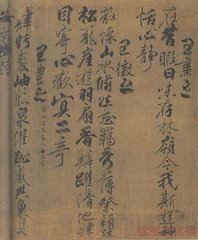 王肅之
在昔暇日味存林嶺今我斯遊神
怡心靜
王徽之
散懷山水翛然忘羈秀薄粲穎疎
松籠崖遊羽扇霄鱗躍清池歸
目寄心歡冥二奇
王豐之
肆盼巖岫臨泉濯趾感興魚鳥